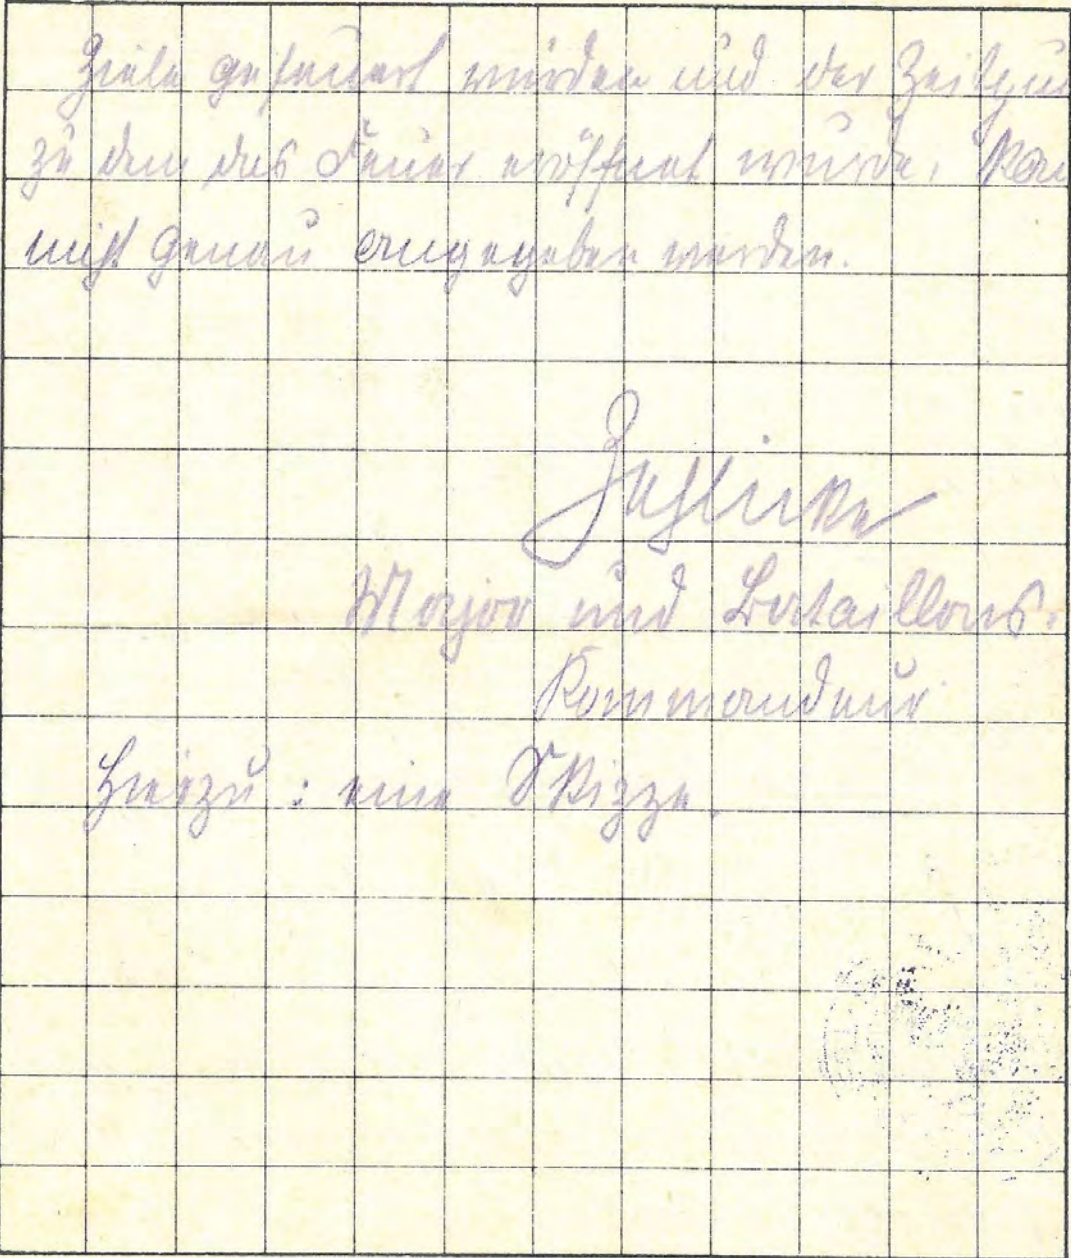 Ziele gefeuert würden und der Zeitpun
zu dem das Feuer eröffnet wurde, kan
nicht genau angegeben werden.
Major und Bataillons-
Kommandeur
Hierzu: eine Skizze.